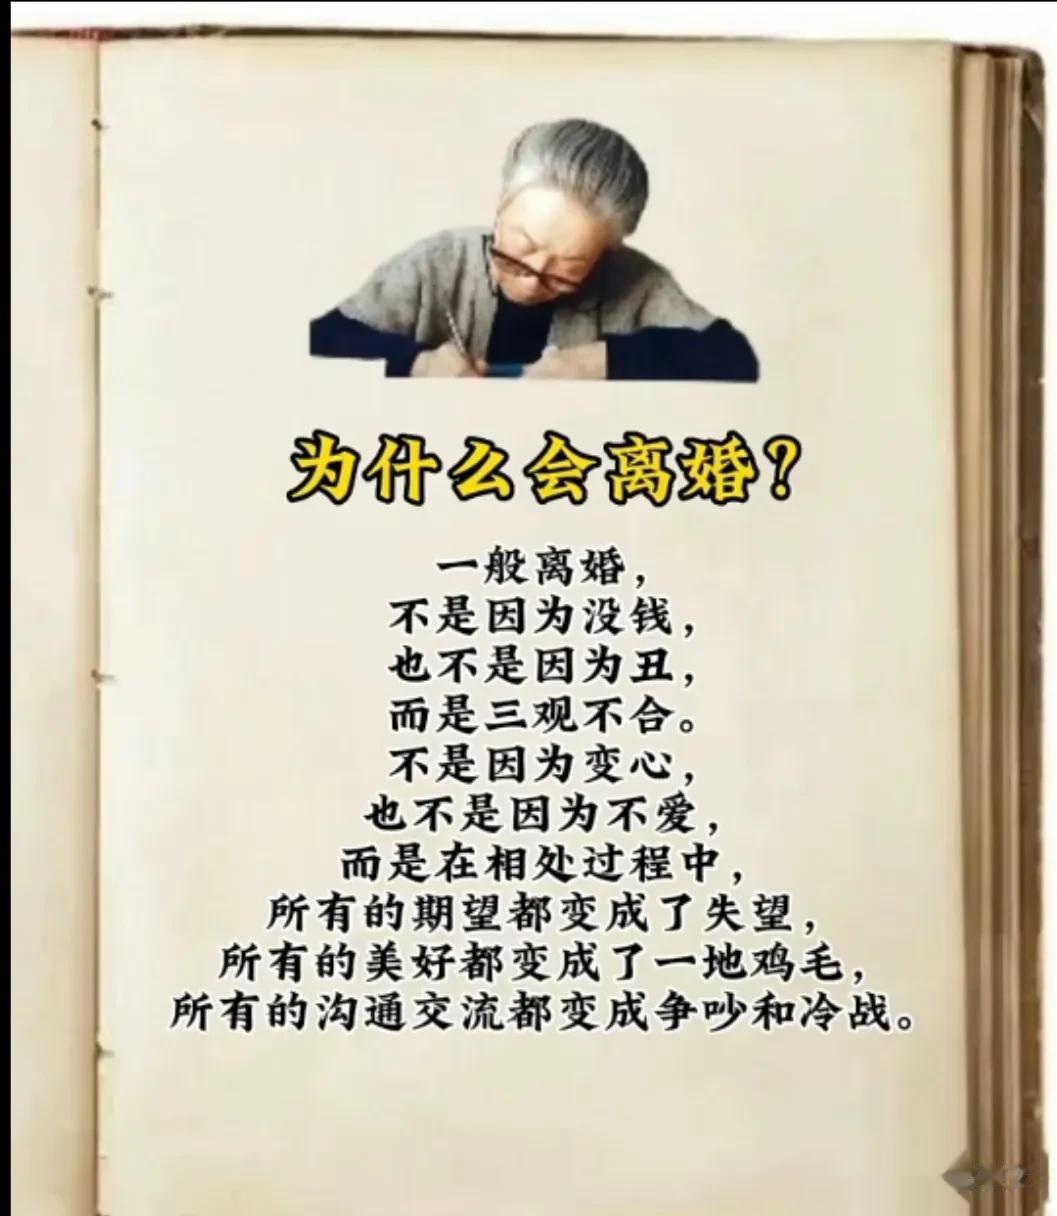 为什么会离婚？
一般离婚，
不是因为没钱，
也不是因为丑，
而是三观不合。
不是因为变心，
也不是因为不爱，
而是在相处过程中，
所有的期望都变成了失望，
所有的美好都变成了一地鸡毛，
所有的沟通交流都变成争吵和冷战。